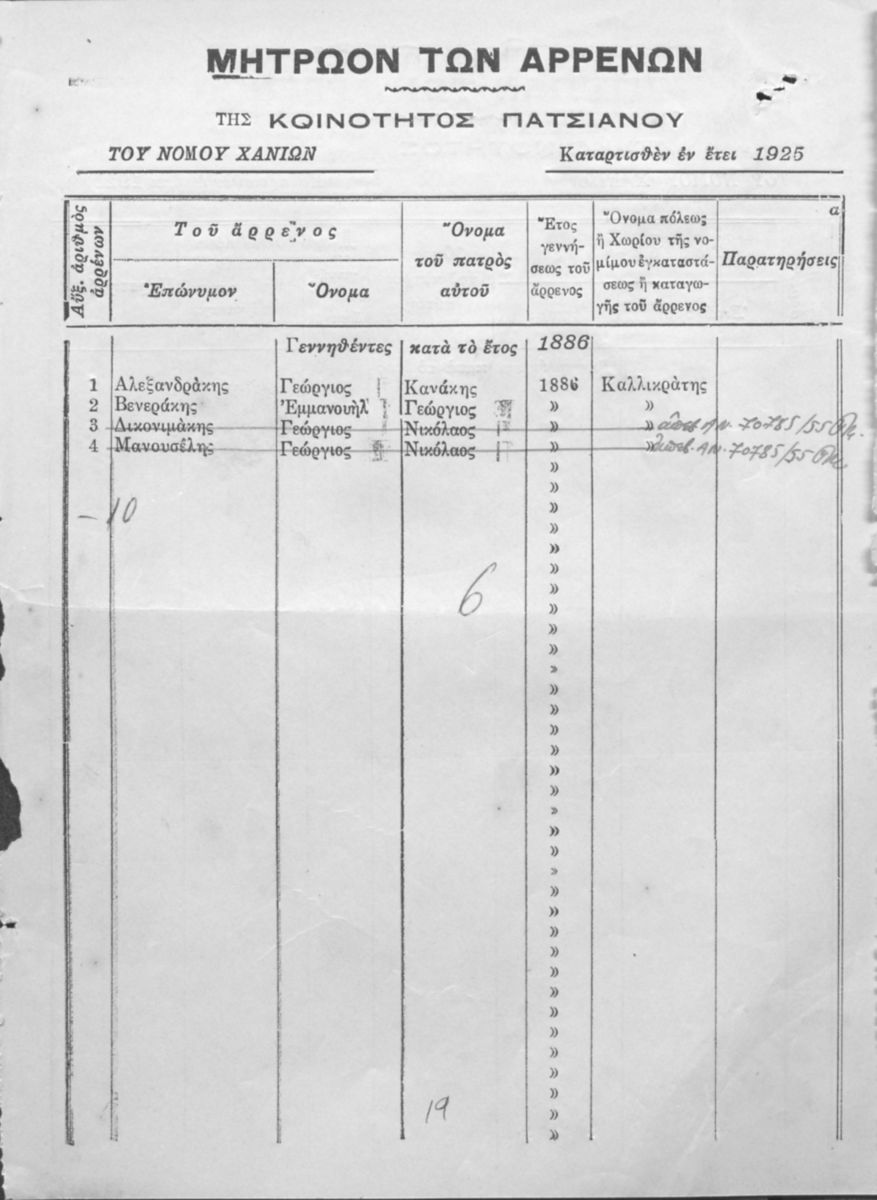 ΜΗΤΡΩΟΝ ΤΩΝ ΑΡΡΕΝΩΝ
ΤΗΣ ΚΟΙΝΟΤΗΤΟΣ ΠΑΤΣΙΑΝΟΥ
ΤΟΥ ΝΟΜΟΥ ΧΑΝΙΩΝ Καταρτισθὲν ἐν ἔτει 1925
α
Αὔξ. ἀριθμὸς ἀρρένων
Τοῦ ἄρρενος
Ἐπώνυμον
Ὄνομα
Ὄνομα
τοῦ πατρὸς
αὐτοῦ
Ἔτος
γεννή-
σεως τοῦ
ἄρρενος
Ὄνομα πόλεως
ἢ Χωρίου τῆς νο-
μίμου ἐγκαταστά-
σεως ἢ καταγω-
γῆς τοῦ ἄρρενος
Παρατηρήσεις
Γεννηθέντες κατὰ τὸ ἔτος 1886
1 Αλεξανδράκης Γεώργιος Κανάκης 1886 Καλλικράτης
2 Βενεράκης Ἐμμανουὴλ Γεώργιος » »
3 Δικονιμάκης Γεώργιος Νικόλαος » » ΑΝ. 70785/55
4 Μανουσέλης Γεώργιος Νικόλαος » » ΑΝ. 70785/55
»
»
– 10 »
»
»
»
»
6 »
»
»
»
»
»
»
»
»
»
»
»
»
»
»
»
»
»
»
»
»
»
»
»
»
»
19 »
»